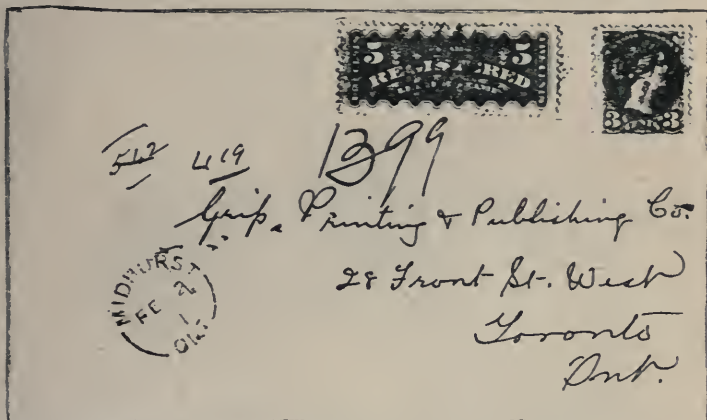 5 REGISTERED 5
3 3
542 419 1399
Grip. Printing & Publishing Co.
28 Front St. West
Toronto
Ont.
MIDHURST
FE 2
1
ONT